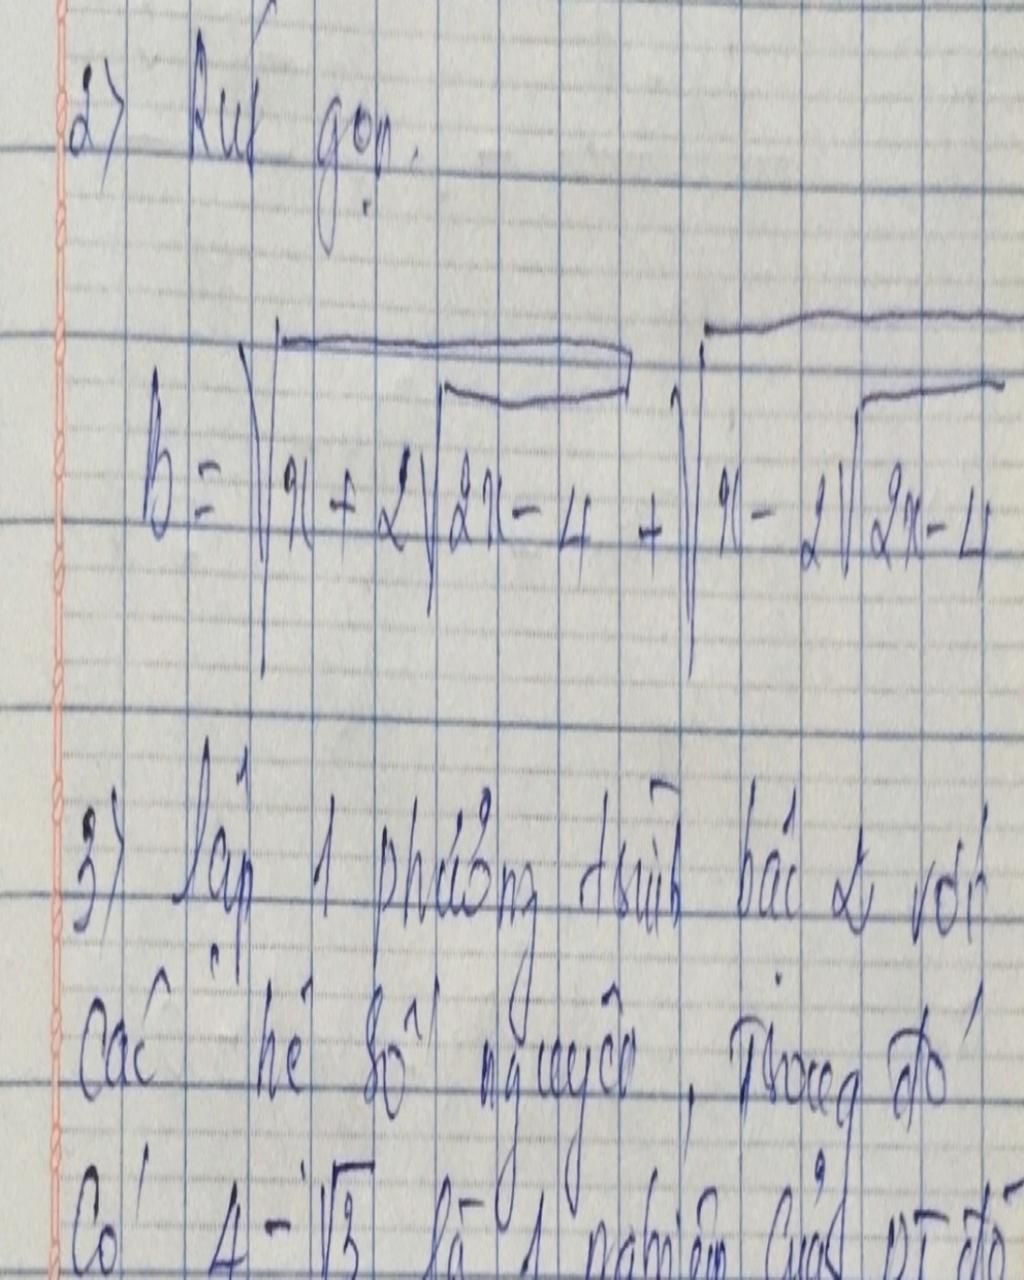 2) Rút gọn.
b = √(x + 2√(2x - 4)) + √(x - 2√(2x - 4))
3) Lập 1 phương trình bậc 2 với
các hệ số nguyên, Trong đó
Có 4 - √3 là 1 nghiệm của PT đó